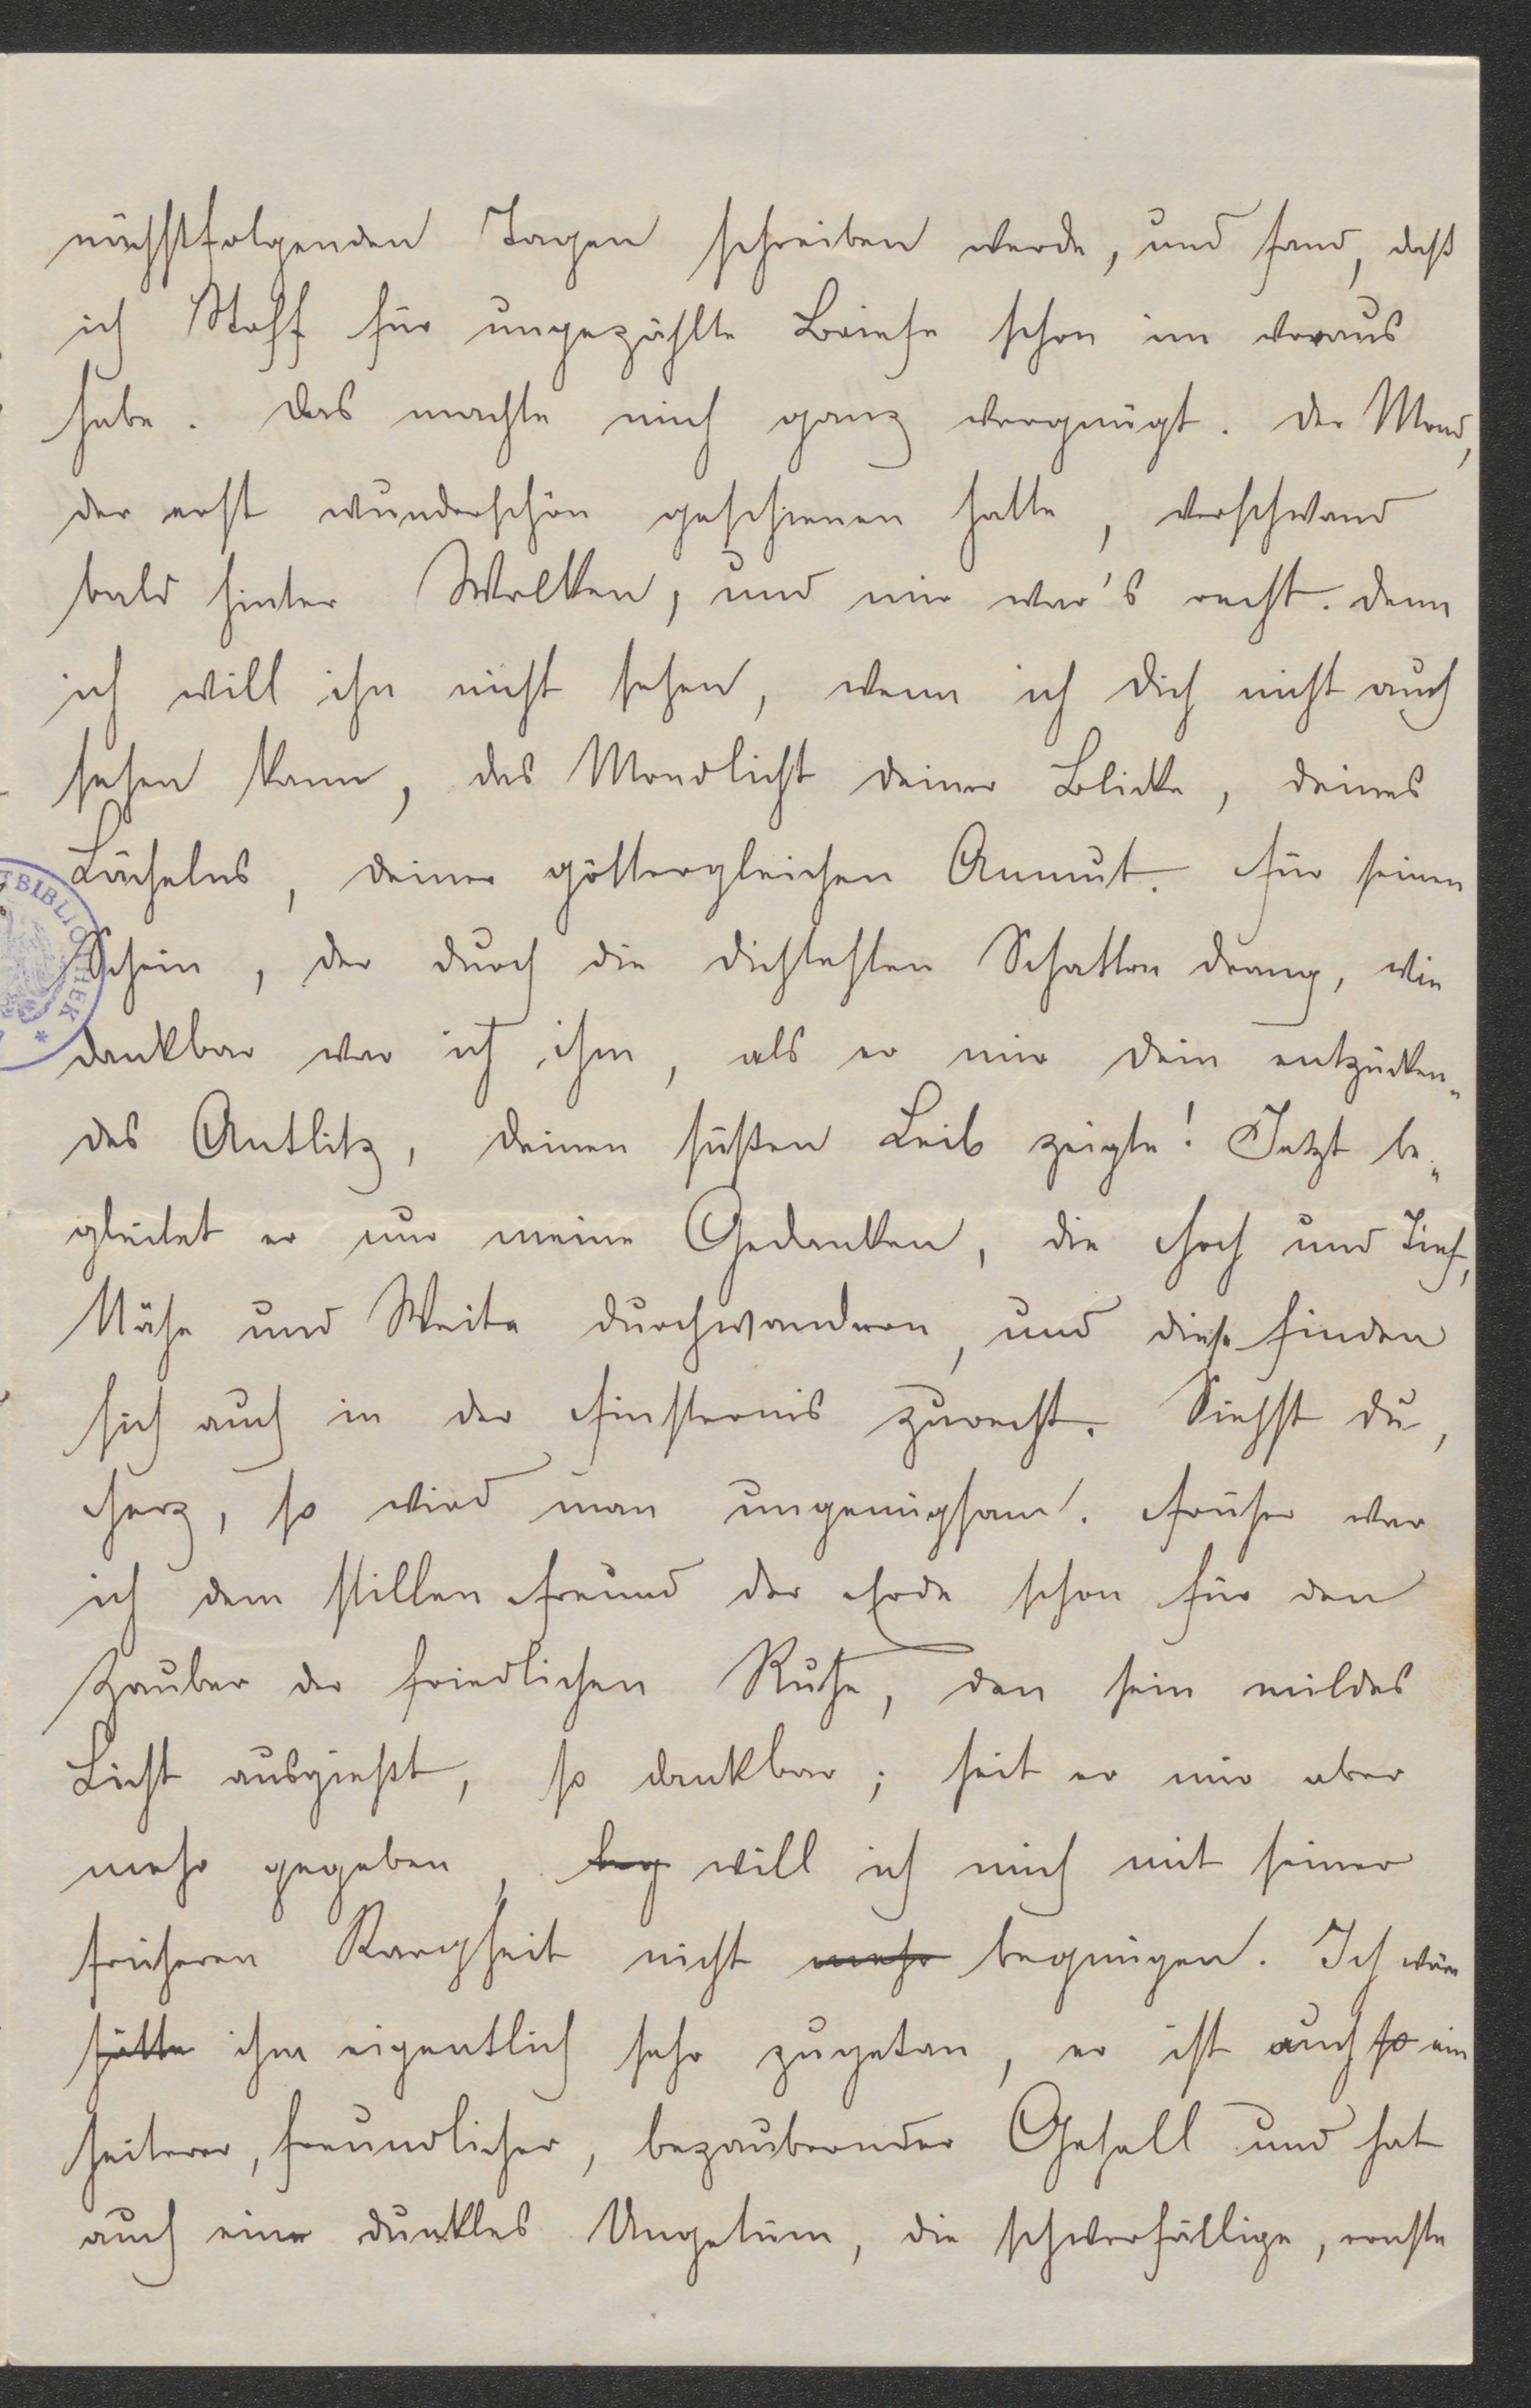 nächstfolgenden Tagen schreiben werde, und fand, daß
ich Stoff für ungezählte Briefe schon im voraus
habe. Das machte mich ganz vergnügt. Der Mond,
der erst wunderschön geschienen hatte, verschwand
bald hinter Wolken, und mir war's recht. Denn
ich will ihn nicht sehen, wenn ich Dich nicht auch
sehen kann, das Mondlicht Deiner Blicke, Deines
Lächelns, Deiner göttergleichen Anmut. Für seinen
Schein, der durch die dichtesten Schatten drang, wie
dankbar war ich ihm, als er mir Dein entzücken„
des Antlitz, Deinen süßen Leib zeigte! Jetzt be„
gleitet er nur meine Gedanken, die Hoch und Tief,
Nähe und Weite durchwandern, und diese finden
sich auch in der Finsternis zurecht. Siehst Du,
Herz, so wird man ungenügsam. Früher war
ich dem stillen Freund der Erde schon für den
Zauber der friedlichen Ruhe, den sein mildes
Licht ausgießt, so dankbar; seit er mir aber
mehr gegeben, beg will ich mich mit seiner
früheren Kargheit nicht mehr begnügen. Ich wäre
hätte ihm eigentlich sehr zugetan, er ist auch so ein
heiterer, freundlicher, bezaubernder Gesell und hat
auch ein dunkles Ungetüm, die schwerfällige, ernste
BIBLIOTHEK *